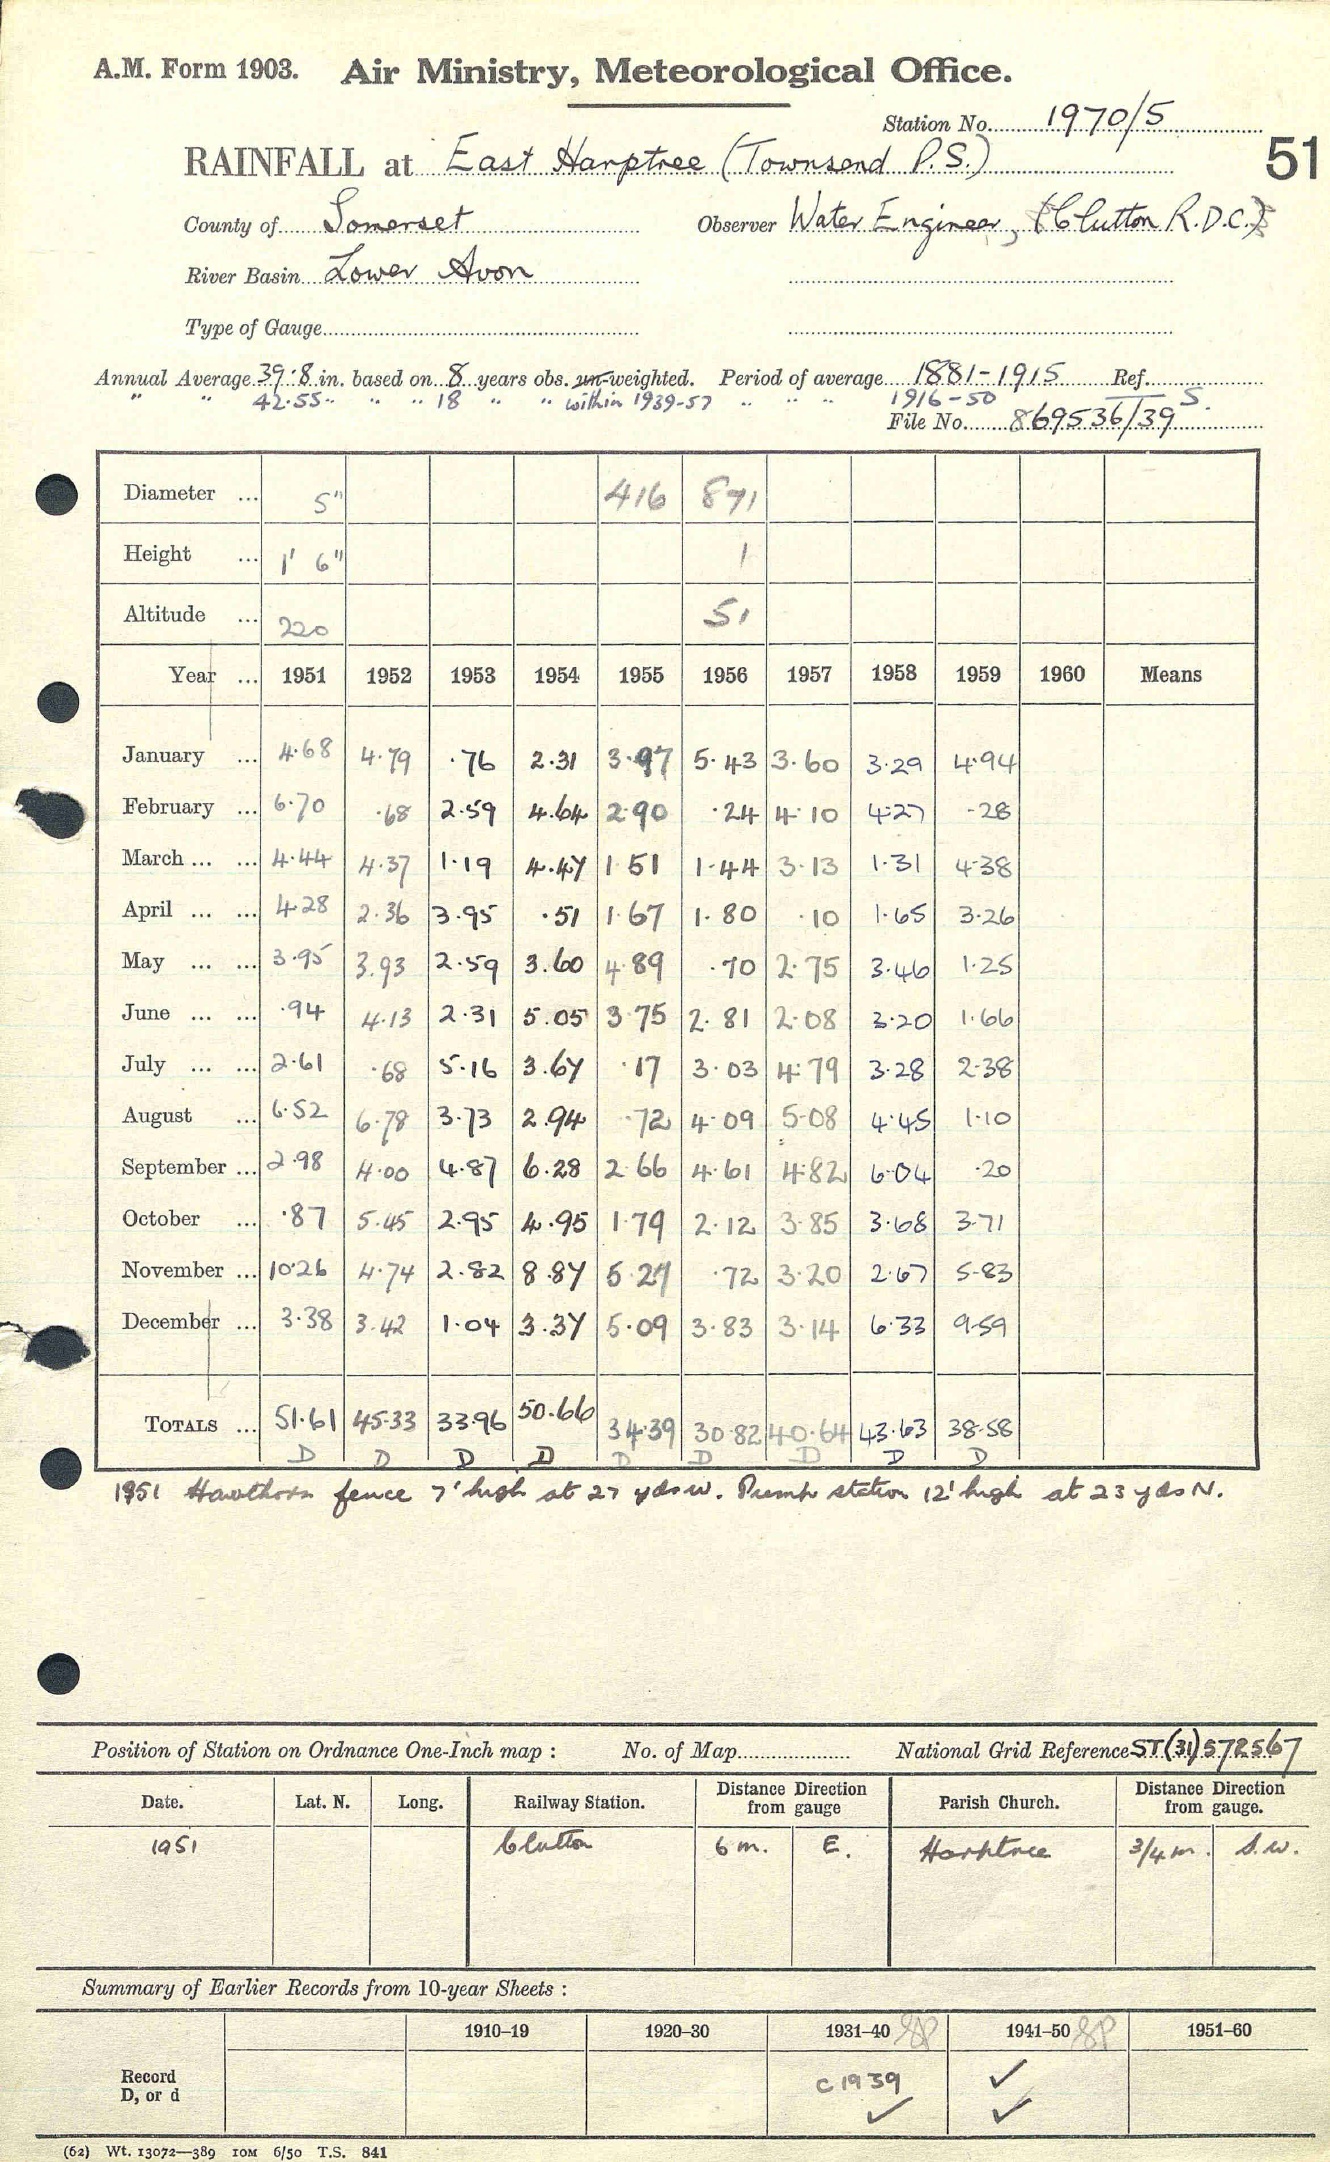 A.M. Form 1903. Air Ministry, Meteorological Office.
Station No. 1970/5
51
RAINFALL at East Harptree (Townsend P.S.)
County of Somerset Observer Water Engineer, (Clutton R.D.C.)
River Basin Lower Avon
Type of Gauge
Annual Average 39.8 in. based on 8 years obs. un-weighted. Period of average 1881-1915 Ref.
" " 42.55 " " " 18 " " " within 1939-57 " " " 1916-50 S.
File No. 869536/39
Diameter ... 5" 416 871
Height ... 1' 6" 1
Altitude ... 220 51
Year ... 1951 1952 1953 1954 1955 1956 1957 1958 1959 1960 Means
January ... 4.68 4.79 .76 2.31 3.97 5.43 3.60 3.29 4.94
February ... 6.70 .68 2.59 4.64 2.90 .24 4.10 4.27 .28
March ... ... 4.44 4.37 1.19 4.47 1.51 1.44 3.13 1.31 4.38
April ... ... 4.28 2.36 3.95 .51 1.67 1.80 .10 1.65 3.26
May ... ... 3.95 3.93 2.59 3.60 4.89 .70 2.75 3.46 1.25
June ... ... .94 4.13 2.31 5.05 3.75 2.81 2.08 3.20 1.66
July ... ... 2.61 .68 5.16 3.67 .17 3.03 4.79 3.28 2.38
August ... 6.52 6.78 3.73 2.94 .72 4.09 5.08 4.45 1.10
September ... 2.98 4.00 4.87 6.28 2.66 4.61 4.82 6.04 .20
October ... .87 5.45 2.95 4.95 1.79 2.12 3.85 3.68 3.71
November ... 10.26 4.74 2.82 8.87 5.27 .72 3.20 2.67 5.83
December ... 3.38 3.42 1.04 3.37 5.09 3.83 3.14 6.33 9.59
TOTALS ... 51.61 45.33 33.96 50.66 34.39 30.82 40.64 43.63 38.58
D D D D D D D D D
1951 Hawthorn fence 7' high at 27 yds W. Pump station 12' high at 23 yds N.
Position of Station on Ordnance One-Inch map : No. of Map National Grid Reference ST(31)572567
Date. Lat. N. Long. Railway Station. Distance Direction from gauge Parish Church. Distance Direction from gauge.
1951 Clutton 6 m. E. Harptree 3/4 m. S.W.
Summary of Earlier Records from 10-year Sheets :
1910–19 1920–30 1931–40 1941–50 1951–60
Record
D, or d
c1939 ✓
✓ ✓
(62) Wt. 13072—389 10M 6/50 T.S. 841